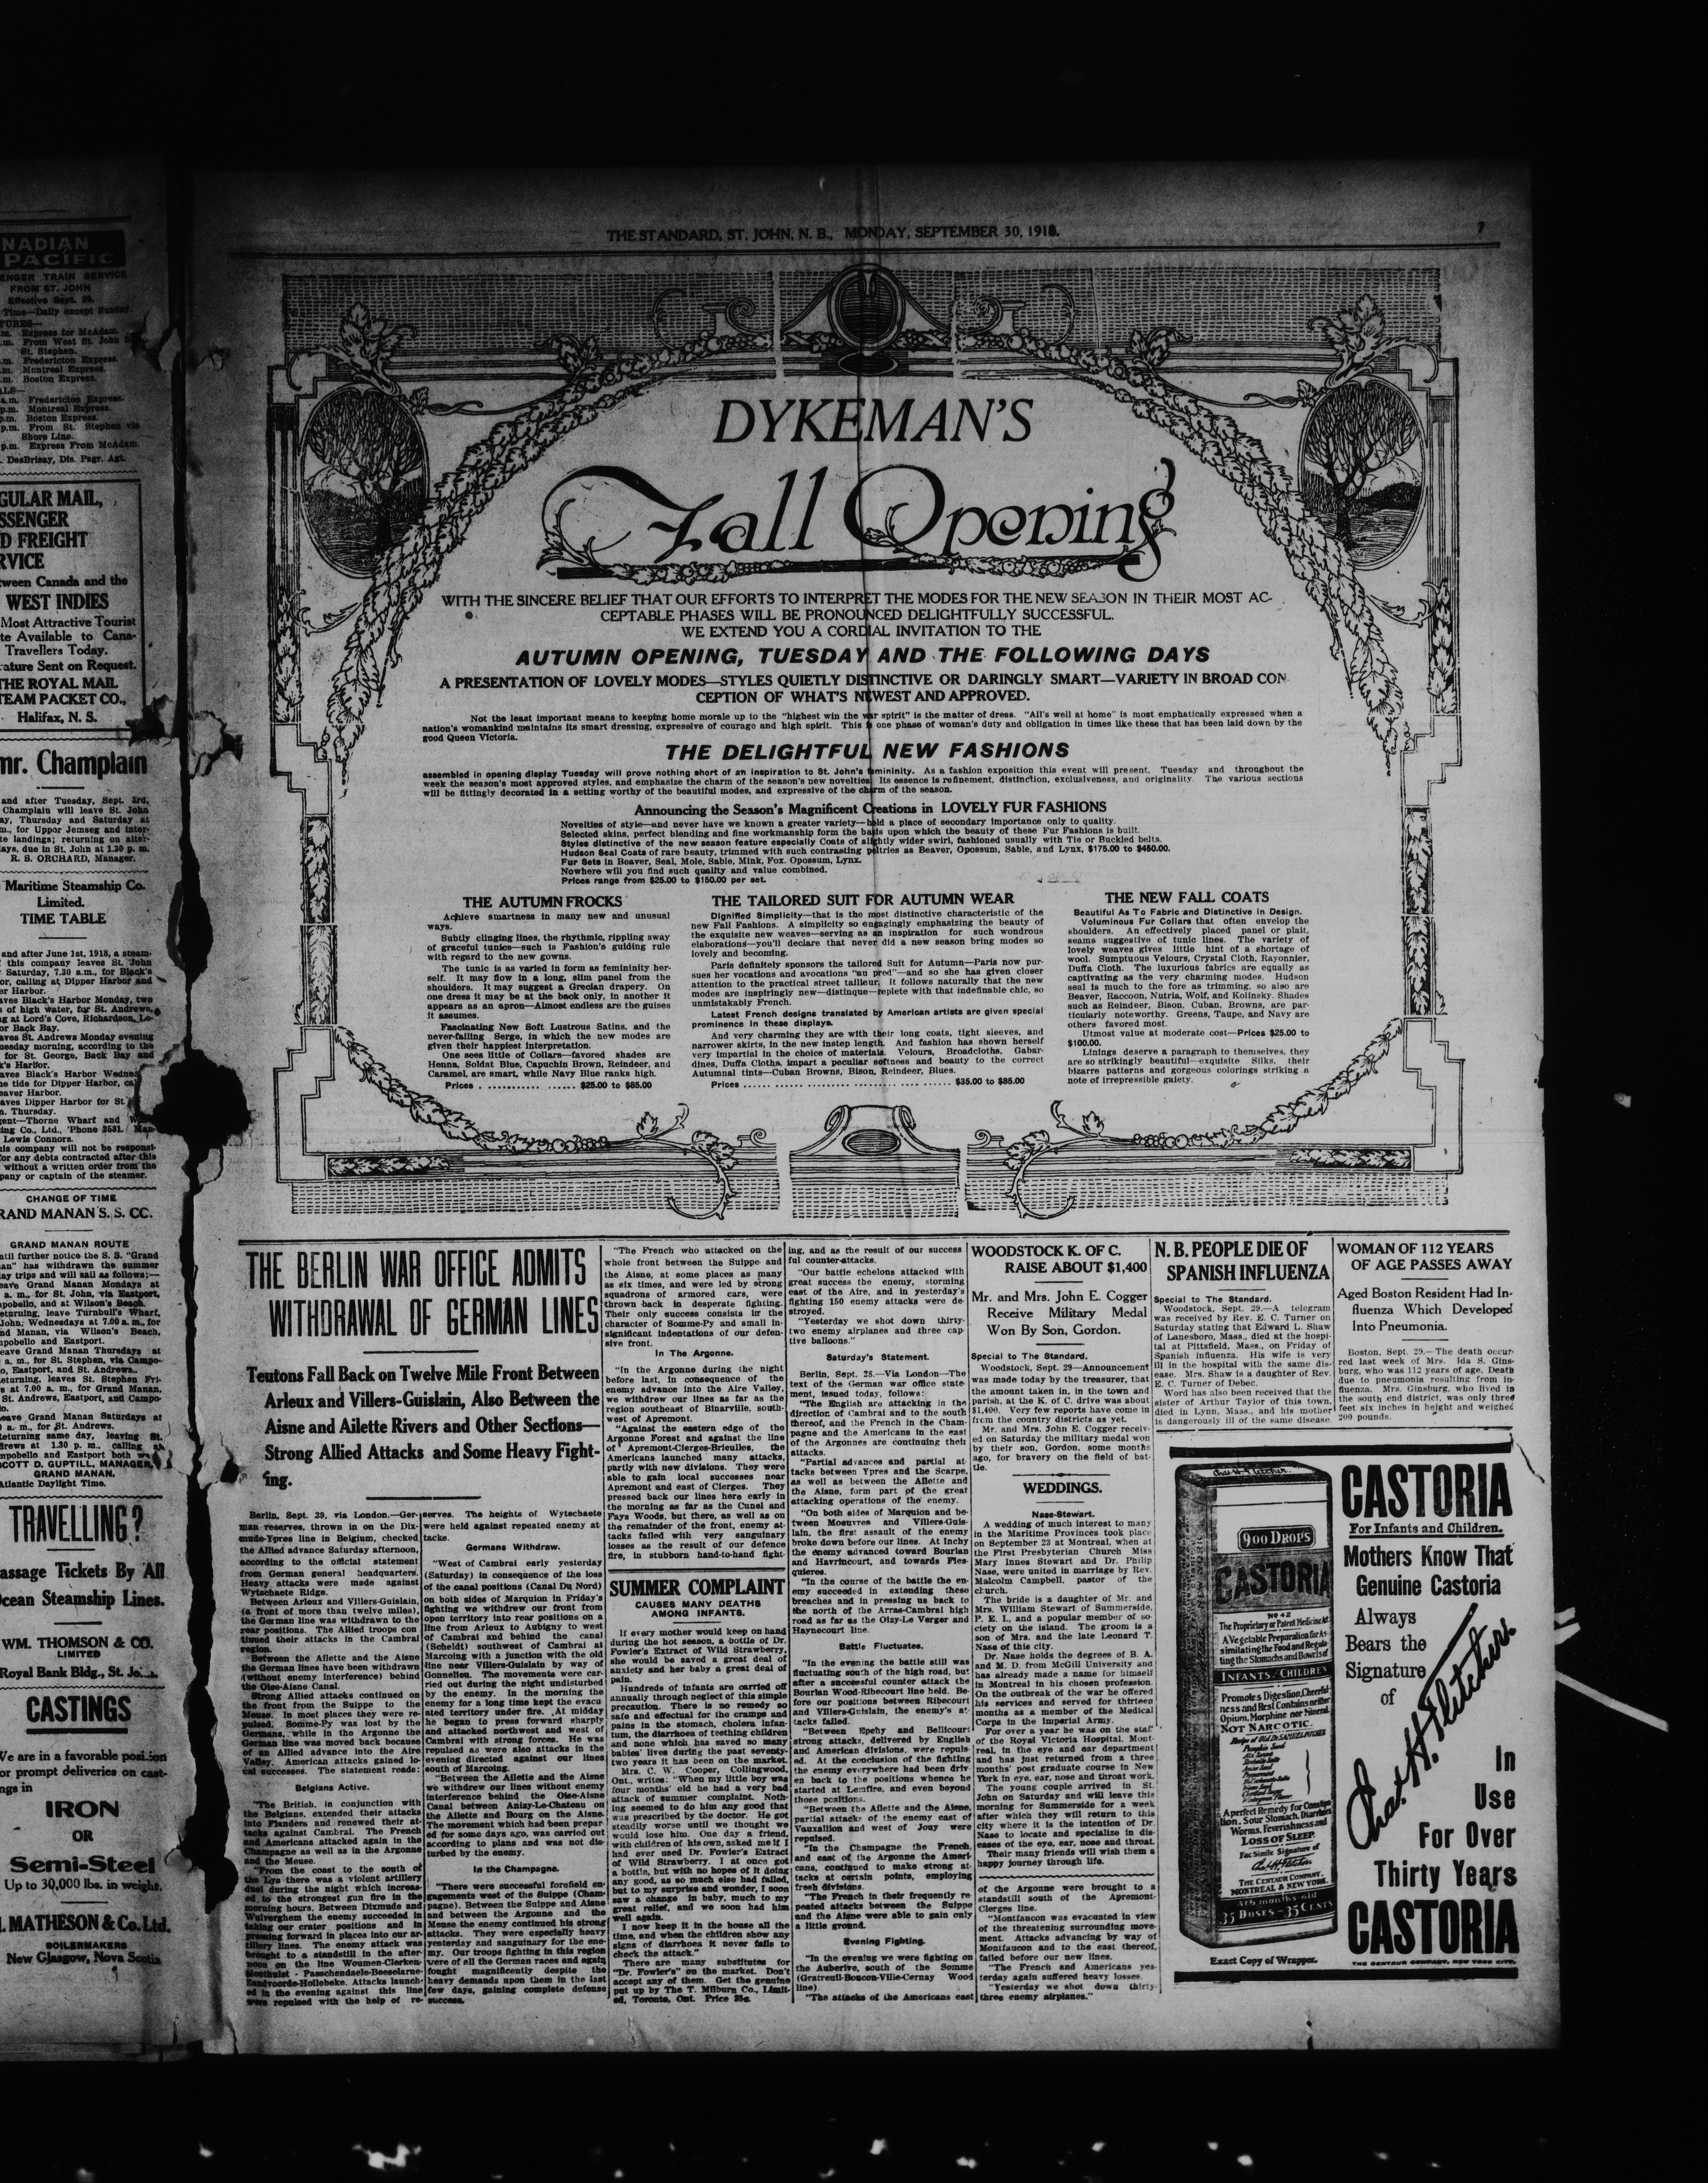 NADIAN
PACIFIC
ENGER TRAIN SERVICE
FROM ST. JOHN
Effective Sept. 29.
Time—Daily except Sunday.
TURES—
m. Express for McAdam.
m. From West St. John
St. Stephen.
m. Fredericton Express.
m. Montreal Express.
m. Boston Express.
ALS—
a.m. Fredericton Express.
p.m. Montreal Express.
p.m. Boston Express.
p.m. From St. Stephen via
Shore Line.
p.m. Express From McAdam.
DesBrisay, Dis. Pagr. Agt.
GULAR MAIL,
SSENGER
D FREIGHT
RVICE
tween Canada and the
WEST INDIES
Most Attractive Tourist
te Available to Cana-
Travellers Today.
rature Sent on Request.
THE ROYAL MAIL
TEAM PACKET CO.,
Halifax, N. S.
mr. Champlain
and after Tuesday, Sept. 3rd,
Champlain will leave St. John
ay, Thursday and Saturday at
m., for Upper Jemseg and inter-
te landings; returning on alter-
days, due in St. John at 1.30 p. m.
R. S. ORCHARD, Manager.
Maritime Steamship Co.
Limited.
TIME TABLE
and after June 1st, 1918, a steam-
this company leaves St. John
Saturday, 7.30 a.m., for Black's
or, calling at Dipper Harbor and
er Harbor.
aves Black's Harbor Monday, two
of high water, for St. Andrews,
g at Lord's Cove, Richardson, Le-
or Back Bay.
aves St. Andrews Monday evening
uesday morning, according to the
for St. George, Back Bay and
k's Harbor.
aves Black's Harbor Wednes
he tide for Dipper Harbor, cal
eaver Harbor.
aves Dipper Harbor for St.
a. Thursday.
gent—Thorne Wharf and
ing Co., Ltd., 'Phone 2581. Man-
Lewis Connors.
his company will not be responsi-
for any debts contracted after this
without a written order from the
pany or captain of the steamer.
CHANGE OF TIME
RAND MANAN S. S. CC.
GRAND MANAN ROUTE
ntil further notice the S. S. "Grand
an" has withdrawn the summer
ay trips and will sail as follows:—
eave Grand Manan Mondays at
a. m., for St. John, via Eastport,
mpobello, and at Wilson's Beach.
eturning, leave Turnbull's Wharf,
John, Wednesdays at 7.00 a. m., for
nd Manan, via Wilson's Beach,
mpobello and Eastport.
eave Grand Manan Thursdays at
a. m., for St. Stephen, via Campo-
o, Eastport, and St. Andrews.
eturning, leaves St. Stephen Fri-
s at 7.00 a. m., for Grand Manan,
St. Andrews, Eastport, and Campo-
lo.
eave Grand Manan Saturdays at
0 a. m., for St. Andrews.
eturning same day, leaving St.
drews at 1.30 p. m., calling at
mpobello and Eastport both way
SCOTT D. GUPTILL, MANAGER,
GRAND MANAN.
Atlantic Daylight Time.
TRAVELLING?
assage Tickets By All
cean Steamship Lines.
WM. THOMSON & CO.
LIMITED
Royal Bank Bldg., St. Jo
CASTINGS
We are in a favorable position
or prompt deliveries on cast-
ngs in
IRON
OR
Semi-Steel
Up to 30,000 lbs. in weight.
I. MATHESON & Co. Ltd.
BOILERMAKERS
New Glasgow, Nova Scotia
THE STANDARD, ST. JOHN, N. B., MONDAY, SEPTEMBER 30, 1918.
7
DYKEMAN'S
Fall Opening
WITH THE SINCERE BELIEF THAT OUR EFFORTS TO INTERPRET THE MODES FOR THE NEW SEASON IN THEIR MOST AC-
CEPTABLE PHASES WILL BE PRONOUNCED DELIGHTFULLY SUCCESSFUL.
WE EXTEND YOU A CORDIAL INVITATION TO THE
AUTUMN OPENING, TUESDAY AND THE FOLLOWING DAYS
A PRESENTATION OF LOVELY MODES—STYLES QUIETLY DISTINCTIVE OR DARINGLY SMART—VARIETY IN BROAD CON
CEPTION OF WHAT'S NEWEST AND APPROVED.
Not the least important means to keeping home morale up to the "highest win the war spirit" is the matter of dress. "All's well at home" is most emphatically expressed when a
nation's womankind maintains its smart dressing, expressive of courage and high spirit. This is one phase of woman's duty and obligation in times like these that has been laid down by the
good Queen Victoria.
THE DELIGHTFUL NEW FASHIONS
assembled in opening display Tuesday will prove nothing short of an inspiration to St. John's femininity. As a fashion exposition this event will present, Tuesday and throughout the
week the season's most approved styles, and emphasize the charm of the season's new novelties. Its essence is refinement, distinction, exclusiveness, and originality. The various sections
will be fittingly decorated in a setting worthy of the beautiful modes, and expressive of the charm of the season.
Announcing the Season's Magnificent Creations in LOVELY FUR FASHIONS
Novelties of style—and never have we known a greater variety—hold a place of secondary importance only to quality.
Selected skins, perfect blending and fine workmanship form the basis upon which the beauty of these Fur Fashions is built.
Styles distinctive of the new season feature especially Coats of slightly wider swirl, fashioned usually with Tie or Buckled belts.
Hudson Seal Coats of rare beauty, trimmed with such contrasting peltries as Beaver, Opossum, Sable, and Lynx, $175.00 to $450.00.
Fur Sets in Beaver, Seal, Mole, Sable, Mink, Fox, Opossum, Lynx.
Nowhere will you find such quality and value combined.
Prices range from $25.00 to $150.00 per set.
THE AUTUMN FROCKS
Achieve smartness in many new and unusual
ways.
Subtly clinging lines, the rhythmic, rippling sway
of graceful tunics—such is Fashion's guiding rule
with regard to the new gowns.
The tunic is as varied in form as femininity her-
self. It may flow in a long, slim panel from the
shoulders. It may suggest a Grecian drapery. On
one dress it may be at the back only, in another it
appears as an apron—Almost endless are the guises
it assumes.
Fascinating New Soft Lustrous Satins, and the
never-failing Serge, in which the new modes are
given their happiest interpretation.
One sees little of Collars—favored shades are
Henna, Soldat Blue, Capuchin Brown, Reindeer, and
Caramel, are smart, while Navy Blue ranks high.
Prices . . . . . . . . . . . . . $25.00 to $85.00
THE TAILORED SUIT FOR AUTUMN WEAR
Dignified Simplicity—that is the most distinctive characteristic of the
new Fall Fashions. A simplicity so engagingly emphasizing the beauty of
the exquisite new weaves—serving as an inspiration for such wondrous
elaborations—you'll declare that never did a new season bring modes so
lovely and becoming.
Paris definitely sponsors the tailored Suit for Autumn—Paris now pur-
sues her vocations and avocations "au pred"—and so she has given closer
attention to the practical street tailleur. It follows naturally that the new
modes are inspiringly new—distinque—replete with that indefinable chic, so
unmistakably French.
Latest French designs translated by American artists are given special
prominence in these displays.
And very charming they are with their long coats, tight sleeves, and
narrower skirts, in the new instep length. And fashion has shown herself
very impartial in the choice of materials. Velours, Broadcloths, Gabar-
dines, Duffa Cloths, impart a peculiar softness and beauty to the correct
Autumnal tints—Cuban Browns, Bison, Reindeer, Blues.
Prices . . . . . . . . . . . . . . . . . . . . . . . . $35.00 to $85.00
THE NEW FALL COATS
Beautiful As To Fabric and Distinctive in Design.
Voluminous Fur Collars that often envelop the
shoulders. An effectively placed panel or plait,
seams suggestive of tunic lines. The variety of
lovely weaves gives little hint of a shortage of
wool. Sumptuous Velours, Crystal Cloth, Rayonnier,
Duffa Cloth. The luxurious fabrics are equally as
captivating as the very charming modes. Hudson
seal is much to the fore as trimming, so also are
Beaver, Raccoon, Nutria, Wolf, and Kolinsky. Shades
such as Reindeer, Bison, Cuban, Browns, are par-
ticularly noteworthy. Greens, Taupe, and Navy are
others favored most.
Utmost value at moderate cost—Prices $25.00 to
$100.00.
Linings deserve a paragraph to themselves, they
are so strikingly beautiful—exquisite Silks, their
bizarre patterns and gorgeous colorings striking a
note of irrepressible gaiety.
THE BERLIN WAR OFFICE ADMITS
WITHDRAWAL OF GERMAN LINES
Teutons Fall Back on Twelve Mile Front Between
Arleux and Villers-Guislain, Also Between the
Aisne and Ailette Rivers and Other Sections—
Strong Allied Attacks and Some Heavy Fight-
ing.
Berlin, Sept. 29, via London.—Ger-
man reserves, thrown in on the Dix-
mude-Ypres line in Belgium, checked
the Allied advance Saturday afternoon,
according to the official statement
from German general headquarters.
Heavy attacks were made against
Wytschaete Ridge.
Between Arleux and Villers-Guislain,
(a front of more than twelve miles),
the German line was withdrawn to the
rear positions. The Allied troops con
tinued their attacks in the Cambrai
region.
Between the Ailette and the Aisne
the German lines have been withdrawn
(without enemy interference) behind
the Oise-Aisne Canal.
Strong Allied attacks continued on
the front from the Suippe to the
Meuse. In most places they were re-
pulsed. Somme-Py was lost by the
Germans, while in the Argonne the
German line was moved back because
of an Allied advance into the Aire
Valley. American attacks gained lo-
cal successes. The statement reads:
Belgians Active.
"The British, in conjunction with
the Belgians, extended their attacks
into Flanders and renewed their at-
tacks against Cambrai. The French
and Americans attacked again in the
Champagne as well as in the Argonne
and the Meuse.
"From the coast to the south of
the Lys there was a violent artillery
duel during the night which increas-
ed to the strongest gun fire in the
morning hours. Between Dixmude and
Wulverghem the enemy succeeded in
taking our crater positions and in
pressing forward in places into our ar-
tillery lines. The enemy attack was
brought to a standstill in the after-
noon on the line Woumen-Clerken-
Houthulst - Passchendaele-Beeselarne-
Zandvoorde-Hollebeke. Attacks launch-
ed in the evening against this line
were repulsed with the help of re-
serves. The heights of Wytschaete
were held against repeated enemy at
tacks.
Germans Withdraw.
"West of Cambrai early yesterday
(Saturday) in consequence of the loss
of the canal positions (Canal Du Nord)
on both sides of Marquion in Friday's
fighting we withdrew our front from
open territory into rear positions on a
line from Arleux to Aubigny to west
of Cambrai and behind the canal
(Scheldt) southwest of Cambrai at
Marcoing with a junction with the old
line near Villers-Guislain by way of
Gonnelieu. The movements were car-
ried out during the night undisturbed
by the enemy. In the morning the
enemy for a long time kept the evacu
ated territory under fire. At midday
he began to press forward sharply
and attacked northwest and west of
Cambrai with strong forces. He was
repulsed as were also attacks in the
evening directed against our lines
south of Marcoing.
"Between the Ailette and the Aisne
we withdrew our lines without enemy
interference behind the Oise-Aisne
Canal between Anizy-Le-Chateau on
the Ailette and Bourg on the Aisne.
The movement which had been prepar
ed for some days ago, was carried out
according to plans and was not dis-
turbed by the enemy.
In the Champagne.
"There were successful forefield en-
gagements west of the Suippe (Cham-
pagne). Between the Suippe and Aisne
and between the Argonne and the
Meuse the enemy continued his strong
attacks. They were especially heavy
yesterday and sanguinary for the ene-
my. Our troops fighting in this region
were of all the German races and again
fought magnificently despite the
heavy demands upon them in the last
few days, gaining complete defense
success.
"The French who attacked on the
whole front between the Suippe and
the Aisne, at some places as many
as six times, and were led by strong
squadrons of armored cars, were
thrown back in desperate fighting.
Their only success consists in the
character of Somme-Py and small in-
significant indentations of our defen-
sive front.
In The Argonne.
"In the Argonne during the night
before last, in consequence of the
enemy advance into the Aire Valley,
we withdrew our lines as far as the
region southeast of Binarville, south-
west of Apremont.
"Against the eastern edge of the
Argonne Forest and against the line
of Apremont-Cierges-Brieulles, the
Americans launched many attacks,
partly with new divisions. They were
able to gain local successes near
Apremont and east of Cierges. They
pressed back our lines here early in
the morning as far as the Cunel and
Fays Woods, but there, as well as on
the remainder of the front, enemy at-
tacks failed with very sanguinary
losses as the result of our defence
fire, in stubborn hand-to-hand fight-
SUMMER COMPLAINT
CAUSES MANY DEATHS
AMONG INFANTS.
If every mother would keep on hand
during the hot season, a bottle of Dr.
Fowler's Extract of Wild Strawberry,
she would be saved a great deal of
anxiety and her baby a great deal of
pain.
Hundreds of infants are carried off
annually through neglect of this simple
precaution. There is no remedy so
safe and effectual for the cramps and
pains in the stomach, cholera infan-
tum, the diarrhoea of teething children
and none which has saved so many
babies' lives during the past seventy-
two years it has been on the market.
Mrs. C. W. Cooper, Collingwood,
Ont., writes: "When my little boy was
four months' old he had a very bad
attack of summer complaint. Noth-
ing seemed to do him any good that
was prescribed by the doctor. He got
steadily worse until we thought we
would lose him. One day a friend,
with children of his own, asked me if I
had ever used Dr. Fowler's Extract
of Wild Strawberry. I at once got
a bottle, but with no hopes of it doing
any good, as so much else had failed,
but to my surprise and wonder, I soon
saw a change in baby, much to my
great relief, and we soon had him
well again.
I now keep it in the house all the
time, and when the children show any
signs of diarrhoea it never fails to
check the attack."
There are many substitutes for
"Dr. Fowler's" on the market. Don't
accept any of them. Get the genuine
put up by The T. Milburn Co., Limit-
ed, Toronto, Ont. Price 35c.
ing, and as the result of our success
ful counter-attacks.
"Our battle echelons attacked with
great success the enemy, storming
east of the Aire, and in yesterday's
fighting 150 enemy attacks were de-
stroyed.
"Yesterday we shot down thirty-
two enemy airplanes and three cap-
tive balloons."
Saturday's Statement.
Berlin, Sept. 28.—Via London—The
text of the German war office state-
ment, issued today, follows:
"The English are attacking in the
direction of Cambrai and to the south
thereof, and the French in the Cham-
pagne and the Americans in the east
of the Argonnes are continuing their
attacks.
"Partial advances and partial at-
tacks between Ypres and the Scarpe,
as well as between the Ailette and
the Aisne, form part of the great
attacking operations of the enemy.
"On both sides of Marquion and be-
tween Moeuvres and Villers-Guis-
lain, the first assault of the enemy
broke down before our lines. At Inchy
the enemy advanced toward Bourlan
and Havrincourt, and towards Fles-
quieres.
"In the course of the battle the en-
emy succeeded in extending these
breaches and in pressing us back to
the north of the Arras-Cambrai high
road as far as the Oisy-Le Verger and
Haynecourt line.
Battle Fluctuates.
"In the evening the battle still was
fluctuating south of the high road, but
after a successful counter attack the
Bourlan Wood-Ribecourt line held. Be-
fore our positions between Ribecourt
and Villers-Guislain, the enemy's at-
tacks failed.
"Between Epehy and Bellicourt
strong attacks, delivered by English
and American divisions, were repuls-
ed. At the conclusion of the fighting
the enemy everywhere had been driv-
en back to the positions whence he
started at Lemfire, and even beyond
those positions.
"Between the Ailette and the Aisne,
partial attacks of the enemy east of
Vauxallion and west of Jouy were
repulsed.
"In the Champagne the French,
and east of the Argonne the Ameri-
cans, continued to make strong at-
tacks at certain points, employing
fresh divisions.
"The French in their frequently re
peated attacks between the Suippe
and the Aisne were able to gain only
a little ground.
Evening Fighting.
"In the evening we were fighting on
the Auberive, south of the Somme
(Gratreuil-Boucon-Ville-Cernay Wood
line).
"The attacks of the Americans east
WOODSTOCK K. OF C.
RAISE ABOUT $1,400
Mr. and Mrs. John E. Cogger
Receive Military Medal
Won By Son, Gordon.
Special to The Standard.
Woodstock, Sept. 29—Announcement
was made today by the treasurer, that
the amount taken in, in the town and
parish, at the K. of C. drive was about
$1,400. Very few reports have come in
from the country districts as yet.
Mr. and Mrs. John E. Cogger receiv-
ed on Saturday the military medal won
by their son, Gordon, some months
ago, for bravery on the field of bat-
tle.
WEDDINGS.
Nase-Stewart.
A wedding of much interest to many
in the Maritime Provinces took place
on September 23 at Montreal, when at
the First Presbyterian Church Miss
Mary Innes Stewart and Dr. Philip
Nase, were united in marriage by Rev.
Malcolm Campbell, pastor of the
church.
The bride is a daughter of Mr. and
Mrs. William Stewart of Summerside,
P. E. I., and a popular member of so-
ciety on the island. The groom is a
son of Mrs. and the late Leonard T.
Nase of this city.
Dr. Nase holds the degrees of B. A.
and M. D. from McGill University and
has already made a name for himself
in Montreal in his chosen profession.
On the outbreak of the war he offered
his services and served for thirteen
months as a member of the Medical
Corps in the Imperial Army.
For over a year he was on the staff
of the Royal Victoria Hospital, Mont-
real, in the eye and ear department
and has just returned from a three
months' post graduate course in New
York in eye, ear, nose and throat work.
The young couple arrived in St.
John on Saturday and will leave this
morning for Summerside for a week
after which they will return to this
city where it is the intention of Dr.
Nase to locate and specialize in dis-
eases of the eye, ear, nose and throat.
Their many friends will wish them a
happy journey through life.
of the Argonne were brought to a
standstill south of the Apremont-
Cierges line.
"Montfaucon was evacuated in view
of the threatening surrounding move-
ment. Attacks advancing by way of
Montfaucon and to the east thereof,
failed before our new lines.
"The French and Americans yes-
terday again suffered heavy losses.
"Yesterday we shot down thirty-
three enemy airplanes."
N. B. PEOPLE DIE OF
SPANISH INFLUENZA
Special to The Standard.
Woodstock, Sept. 29.—A telegram
was received by Rev. E. C. Turner on
Saturday stating that Edward L. Shaw
of Lanesboro, Mass., died at the hospi-
tal at Pittsfield, Mass., on Friday of
Spanish influenza. His wife is very
ill in the hospital with the same dis-
ease. Mrs. Shaw is a daughter of Rev.
E. C. Turner of Debec.
Word has also been received that the
sister of Arthur Taylor of this town,
died in Lynn, Mass., and his mother
is dangerously ill of the same disease.
WOMAN OF 112 YEARS
OF AGE PASSES AWAY
Aged Boston Resident Had In-
fluenza Which Developed
Into Pneumonia.
Boston, Sept. 29.—The death occur-
red last week of Mrs. Ida S. Gins-
burg, who was 112 years of age. Death
due to pneumonia resulting from in-
fluenza. Mrs. Ginsburg, who lived in
the south end district, was only three
feet six inches in height and weighed
200 pounds.
Chas. H. Fletcher.
900 DROPS
CASTORIA
The Proprietary or Patent Medicine Act
A Vegetable Preparation for As-
similating the Food and Regula-
ting the Stomachs and Bowels of
INFANTS CHILDREN
Promotes Digestion, Cheerful-
ness and Rest. Contains neither
Opium, Morphine nor Mineral.
NOT NARCOTIC.
Recipe of Old Dr. SAMUEL PITCHER
Pumpkin Seed
A perfect Remedy for Constipa-
tion, Sour Stomach, Diarrhoea
Worms, Feverishness and
LOSS OF SLEEP.
Fac Simile Signature of
Chas. H. Fletcher.
THE CENTAUR COMPANY.
MONTREAL & NEW YORK
At 6 months old
35 DOSES-35 CENTS
Exact Copy of Wrapper.
CASTORIA
For Infants and Children.
Mothers Know That
Genuine Castoria
Always
Bears the
Signature
of
Chas. H. Fletcher.
In
Use
For Over
Thirty Years
CASTORIA
THE CENTAUR COMPANY, NEW YORK CITY.